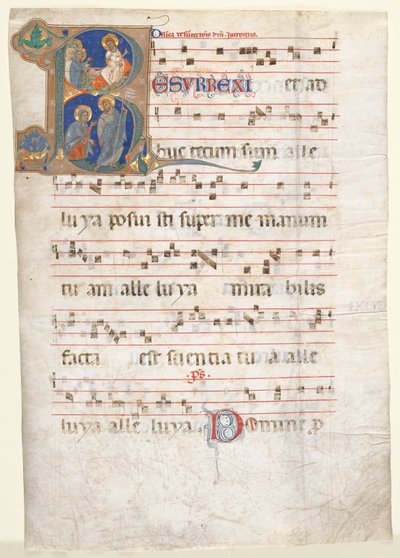 RESURREXI et ad
huc tecum sum alle
luya posui sti super me manum
tu am alle luya mira bilis
facta est scientia tu a alle
ps.
luya alle luya. Domine p